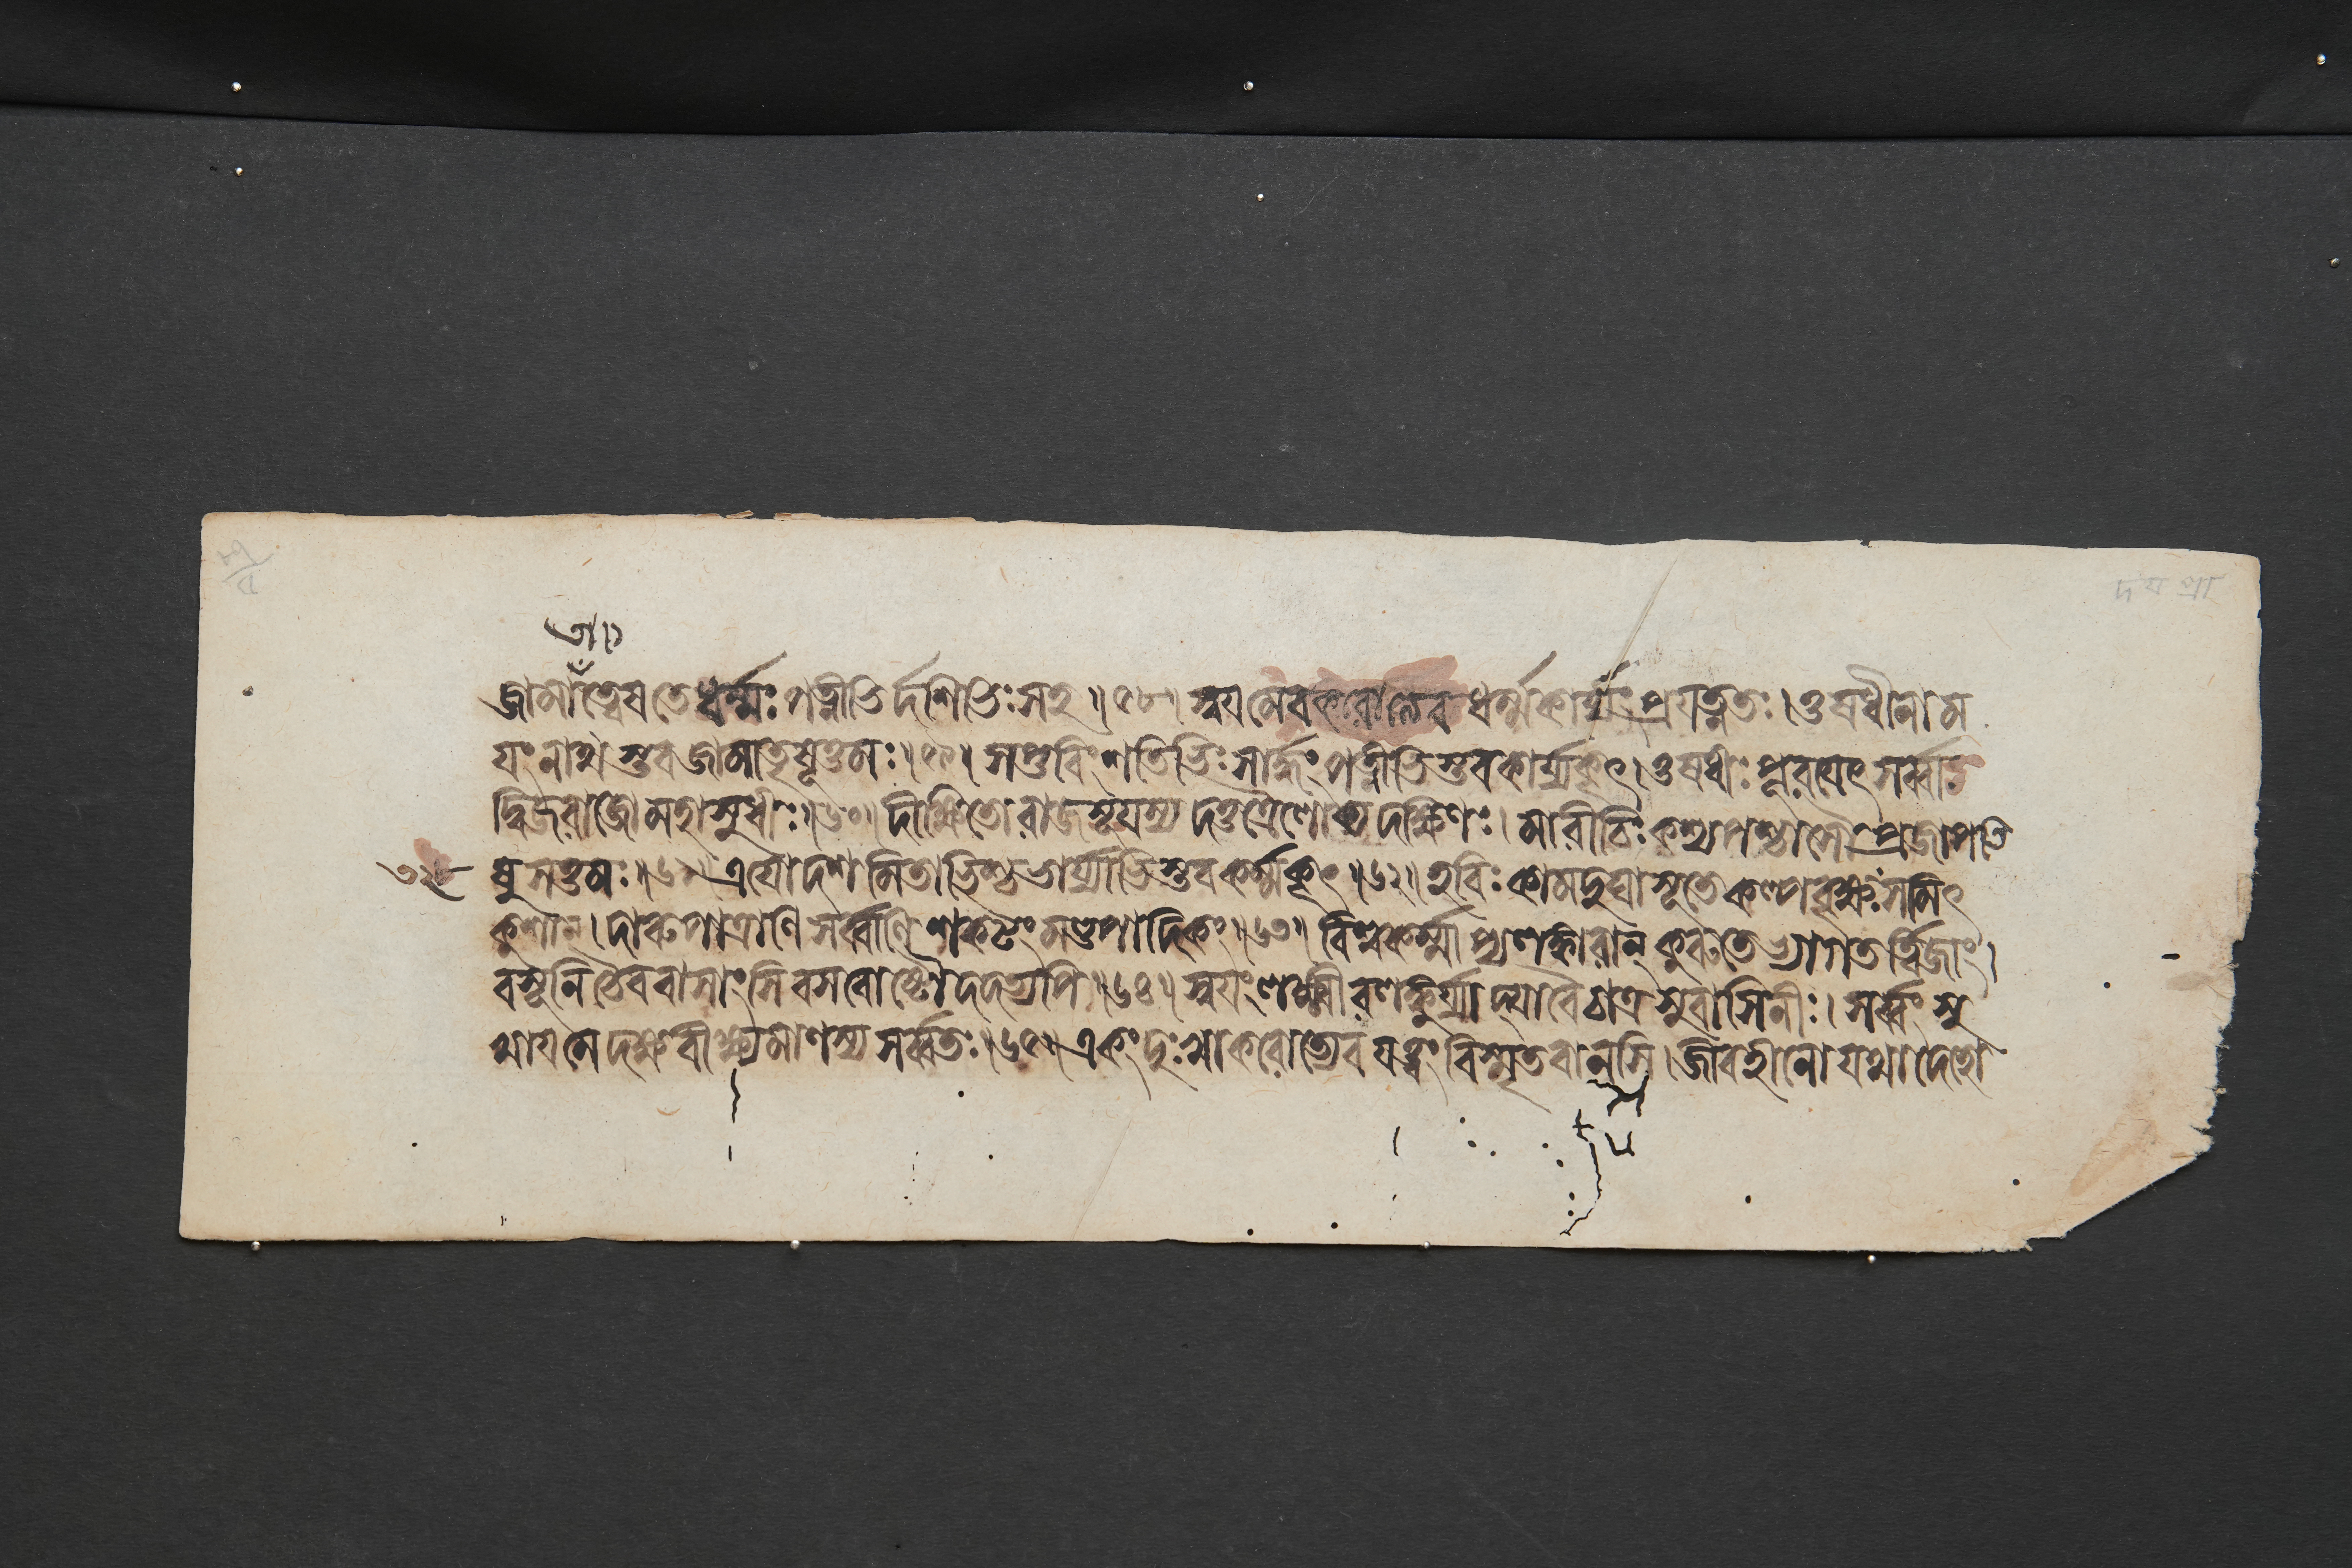 জামাত্বেষতে ধর্ম্মঃ পত্নীভির্দশভিঃ সহ ॥৫৮॥ স্বযমেব করোত্যেব ধর্ম্মকার্য্যং প্রযত্নতঃ। ওষধীনাম
যং নাথস্তব জামাতৃষূত্তমঃ॥৫৯॥ সপ্তবিংশতিভিঃ সার্দ্ধং পত্নীভিস্তব কার্য্যকৃৎ। ওষধীঃ পূরযেৎ সর্ব্বা
দ্বিজরাজো মহাসুধীঃ॥৬০॥ দীক্ষিতো রাজসূযস্য দত্তত্রৈলোক্য দক্ষিণঃ। মারীচিঃ কশ্যপশ্চাসৌ প্রজাপতি
ষু সত্তমঃ॥৬১॥ ত্রযোদশমিতাভিশ্চ ভার্য্যাভিস্তব কর্ম্মকৃৎ॥৬২॥ হবিঃ কামদুঘা সূতে কল্পবৃক্ষঃ সমিৎ
কুশান্। দারুপাত্রাণি সর্ব্বাণি শকটং মণ্ডপাদিকং॥৬৩॥ বিশ্বকর্ম্মাপ্যলঙ্কারান্ কুরুতেভ্যাগতর্ত্বিজাং।
বসূনি চৈব বাসাংসি বসবোষ্টৌ দদত্যপি॥৬৪॥ স্বযং লক্ষ্মীরলঙ্কুর্য্যাদ্যা বৈ চাত্র সুবাসিনীঃ। সর্ব্বং সু
খায মে দক্ষ বীক্ষ্যমাণস্য সর্ব্বতঃ॥৬৫॥ একং দুঃখাকরোত্যেব যত্ত্বং বিস্মৃতবানসি। জীবহীনো যথা দেহো